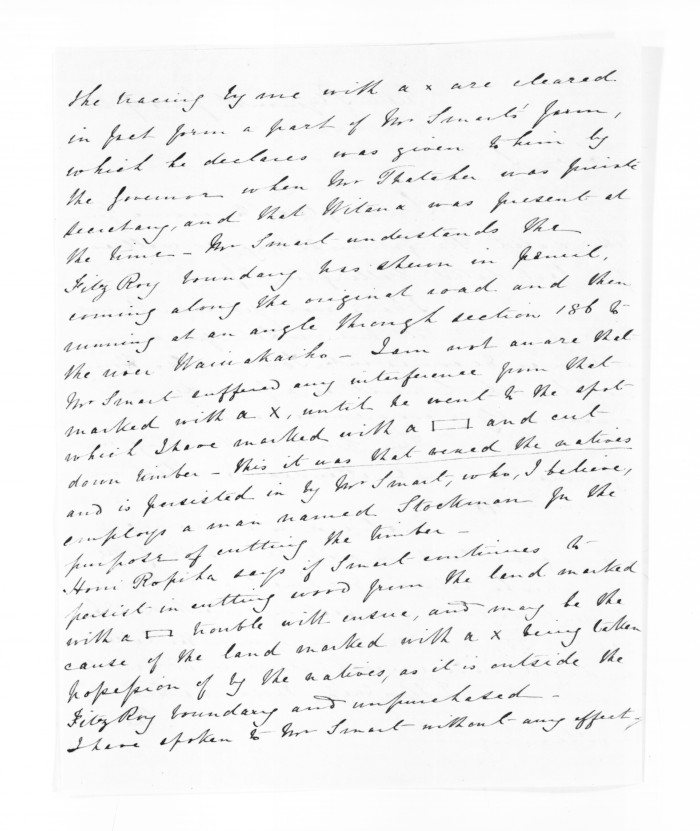 the tracing by me with a x are cleared
in fact form a part of Mr Smart's farm,
which he declares was given to him by
the Governor when Mr Thatcher was private
secretary, and that Witana was present at
the time - Mr Smart understands the
Fitz Roy boundary has shewn in pencil,
coming along the original road and then
running at an angle through section 186 to
the river Waiwakaiho - I am not aware that
Mr Smart suffered any interference from that
marked with a x, until he went to the spot
which I have marked with a ▭ and cut
down timber - this it was that vexed the natives
and is persisted in by Mr Smart, who, I believe,
employs a man named Stockman for the
purpose of cutting the timber -
Honi Ropiha says if Smart continues to
persist in cutting wood from the land marked
with a ▭ trouble will ensue, and may be the
cause of the land marked with a x being taken
possession of by the natives, as it is outside the
Fitz Roy boundary and unpurchased -
I have spoken to Mr Smart without any effect,